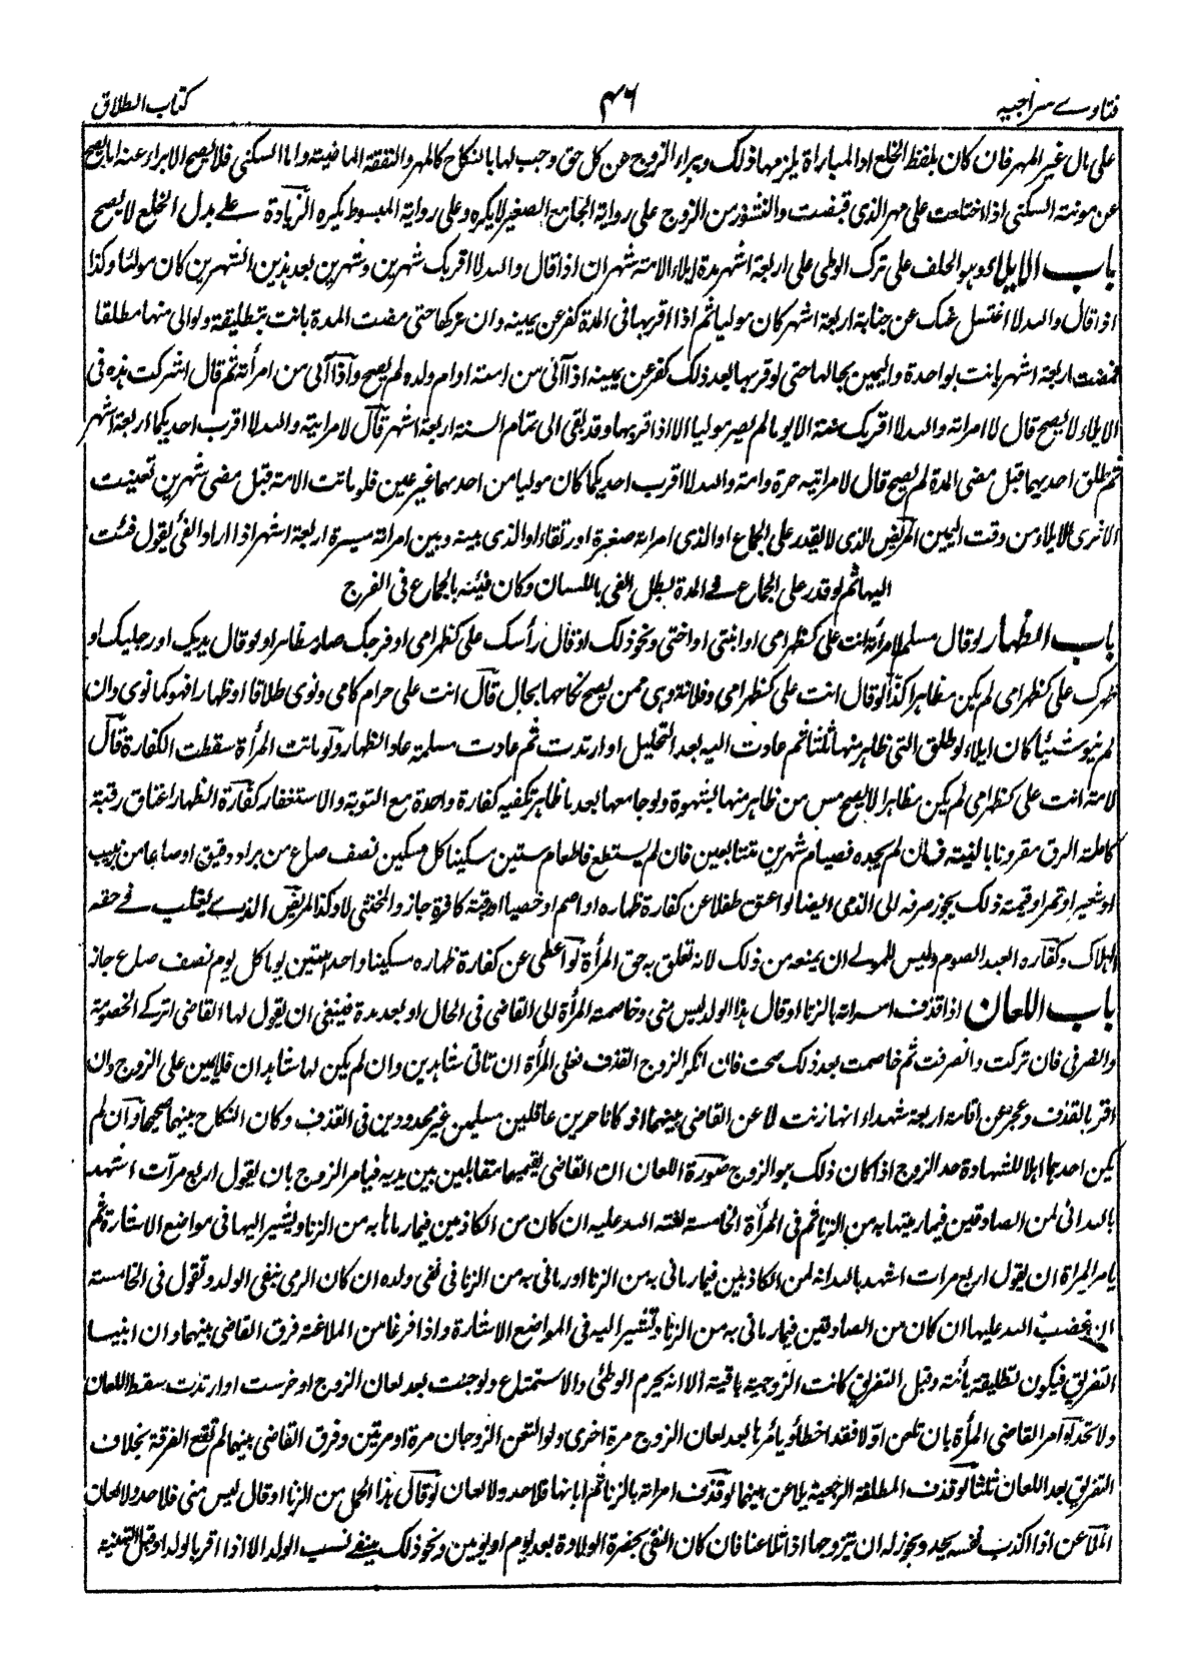 فتاوے سراجیہ
۴۶
کتاب الطلاق
على مال غير المهر فان كان بلفظ الخلع او المباراة يلزمها ذلك ويبراء الزوج عن كل حق وجب لها بالنكاح كالمهر والنفقة الماضية واما السكنى فلا يصح الابراء عنه اما يصح
عن مونة السكنى اذا اختلعت على مهر الذى قبضت والنشوز من الزوج على رواية الجامع الصغير لا يكره وعلى رواية المبسوط يكره الزيادة على بدل الخلع لا يصح
باب الايلاء وهو الحلف على ترك الوطى على اربعة اشهر مدة ايلاء الامة شهران اذا قال والله لا اقربك شهرين وشهرين بعد هذين الشهرين كان موليا وكذا
اذا قال والله لا اغتسل عنك عن جنابة اربعة اشهر كان موليا ثم اذا قربها فى المدة كفر عن يمينه وان تركها حتى مضت المدة بانت بتطليقة ولو الى منها مطلقا
فمضت اربعة اشهر بانت بواحدة واليمين بحالها حتى لو قربها بعد ذلك كفر عن يمينه اذا آلى من امته او ام ولده لم يصح واذا آلى من امرأته ثم قال اشركت هذه فى
الايلاء لا يصح قال لامراته والله لا اقربك سنة الا يوما لم يصر موليا الا اذا قربها وقد بقى الى تمام السنة اربعة اشهر قال لامراتيه والله لا اقرب احديكما اربعة اشهر
ثم طلق احديهما قبل مضى المدة لم يصح قال لامراتيه حرة وامة والله لا اقرب احديكما كان موليا من احديهما غير عين فلو ماتت الامة قبل مضى شهرين تعينت
الاخرى للايلاء من وقت اليمين المريض الذى لا يقدر على الجماع او الذى امراته صغيرة او رتقاء او الذى بينه وبين امراته مسيرة اربعة اشهر اذا اراد الفئ يقول فئت
اليها ثم لو قدر على الجماع فى المدة بطل الفى باللسان وكان فيئه بالجماع فى الفرج
باب الظهار لو قال مسلم لامرأته انت على كظهر امى او ابنتى او اختى ونحو ذلك او قال رأسك على كظهر امى او فرجك صار مظاهرا ولو قال يديك او رجليك او
ظهرك على كظهر امى لم يكن مظاهرا كذا لو قال انت على كظهر امى وفلانة وهى ممن يصح نكاحها بحال قال انت على حرام كامى ونوى طلاقا او ظهارا فهو كما نوى وان
لم ينو شيئا كان ايلاء لو طلق التى ظاهر منها ثلثا ثم عادت اليه بعد التحليل او ارتدت ثم عادت مسلمة عاد الظهار ولو ماتت المرأة سقطت الكفارة قال
لامته انت على كظهر امى لم يكن مظاهرا لا يصح مس من ظاهر منها بشهوة ولو جامعها بعد ما ظاهر تكفيه كفارة واحدة مع التوبة والاستغفار كفارة الظهار اعتاق رقبة
كاملة الرق مقرونا بالنية فان لم يجده فصيام شهرين متتابعين فان لم يستطع فاطعام ستين مسكينا كل مسكين نصف صاع من بر او دقيق او صاعا من زبيب
او شعير او تمر او قيمة ذلك يجوز صرفه الى الذمى ايضا لو اعتق طفلا عن كفارة ظهاره او اصم او خصيا او رقبة كافرة جاز والخنثى لا وكذا المريض الذى يغلب فى حقه
الهلاك وكفاره العبد الصوم وليس للمولے ان يمنعه من ذلك لانه تعلق به حق المرأة لو اعطى عن كفارة ظهاره مسكينا واحدا ستين يوما كل يوم نصف صاع جاز
باب اللعان اذا قذف امراته بالزنا او قال هذا الولد ليس منى وخاصمته المرأة الى القاضى فى الحال او بعد مدة فينبغى ان يقول لها القاضى اتركى الخصومة
وانصرفى فان تركت وانصرفت ثم خاصمت بعد ذلك صحت فان انكر الزوج القذف فعلى المرأة ان تاتى شاهدين وان لم يكن لها شاهدان فلا يمين على الزوج وان
اقر بالقذف وعجز عن اقامة اربعة شهداء انها زنت لاعن القاضى بينهما اذ كانا حرين عاقلين مسلمين غير محدودين فى القذف وكان النكاح بينهما صحيحا وان لم
يكن احدهما اهلا للشهادة حد الزوج اذا كان ذلك هو الزوج صورة اللعان ان القاضى يقيمهما متقابلين بين يديه فيامر الزوج بان يقول اربع مرآت اشهد
بالله انى لمن الصادقين فيما رميتها به من الزنا ثم فى المرأة الخامسة لعنة الله عليه ان كان من الكاذبين فيما رماها به من الزنا ويشير اليها فى مواضع الاشارة ثم
يامر المراة ان يقول اربع مرات اشهد بالله انه لمن الكاذبين فيما رمانى به من الزنا او رمانى به من الزنا فى نفى ولده ان كان الرمى بنفى الولد وتقول فى الخامسة
ان غضب الله عليها ان كان من الصادقين فيما رمانى به من الزنا وتشير اليه فى المواضع الاشارة واذا فرغا من الملاعنة فرق القاضى بينهما وان ابيا
التفريق فيكون تطليقة بائنة وقبل التفريق كانت الزوجية باقية الا انه يحرم الوطئ والاستمتاع ولو جنت بعد لعان الزوج او خرست او ارتدت سقط اللعان
ولا تحد لو امر القاضى المرأة بان تلعن اولا فقد اخطأ ويأمرها بعد لعان الزوج مرة اخرى ولو التعن الزوجان مرة او مرتين وفرق القاضى بينهما لم تقع الفرقة بخلاف
التفريق بعد اللعان ثلثا لو قذف المطلقة الرجعية يلاعن بينهما لو قذف امراته بالزنا ثم ابانها فلا حد ولا لعان لو قال هذا الحمل من الزنا او قال ليس منى فلا حد ولا لعان
الملاعن اذا اكذب نفسه يحد ويجوز له ان يتزوجها اذا تلاعنا فان كان النفى بحضرة الولادة بعد يوم او يومين ونحو ذلك ينفى نسب الولد الا اذا اقر بالولد او قبل التهنية